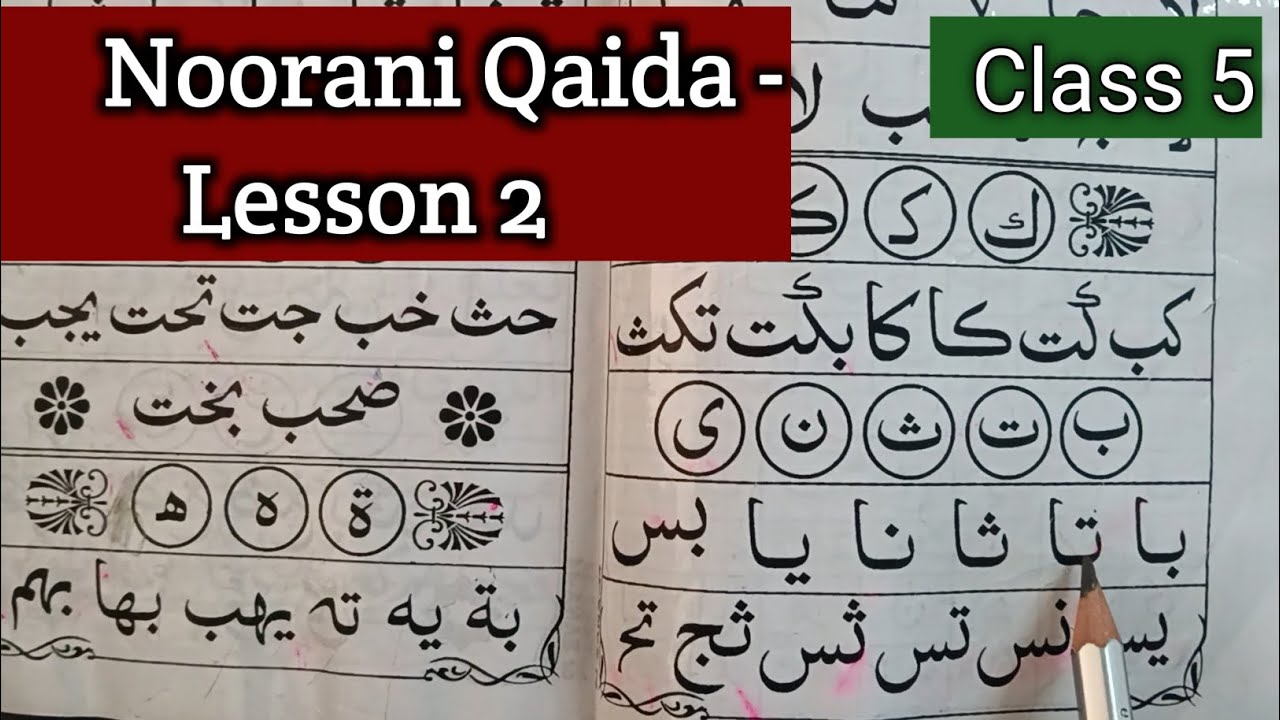 Noorani Qaida -
Lesson 2
Class 5
ك ک ک
كب گت كا كا بگت تكث
ب ت ث ن ى
با تا ثا نا يا بس
نس تس ثس ثج تخ
حث خب جت تحت يجب
صحب بخت
ة ه ھ
بة يه تہ يهب بها بہم